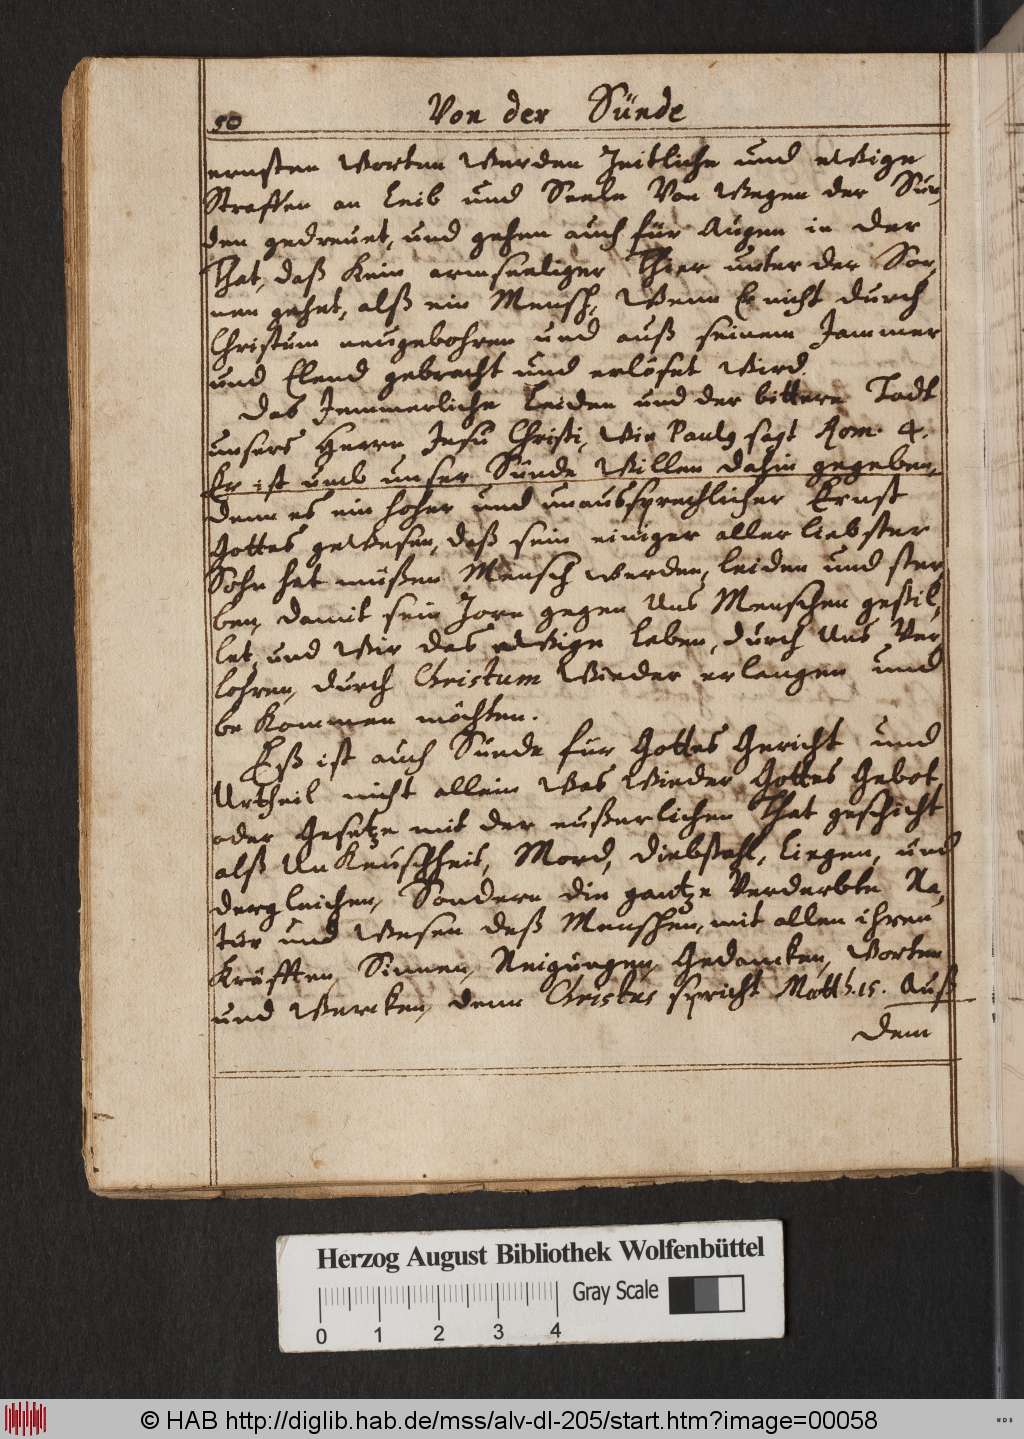 50
Von der Sünde
ernsten Worten werden Zeitliche und ewige
Straffen an Leib und Seele Von Wegen der Sün,
den gedreuet, und gehen auch für Augen in der
That, daß kein armseeliger Thier unter der Son,
nen gehet, alß ein Mensch, Wenn Er nicht durch
Christum neugebohren und auß seinem Jammer
und Elend gebracht und erlöset wird.
Das Jemmerliche Leiden und der bittere Todt
unsers Herrn Jesu Christi, Wie Paulg sagt Rom. 4.
Er ist umb unser Sünde Willen dahin gegeben,
denn es ein hoher und unaussprechlicher Ernst
Gottes gewesen, daß sein einiger aller liebster
Sohn hat müßen Mensch werden, leiden und ster,
ben, damit sein Zorn gegen Uns Menschen gestil,
let, und Wir das ewige leben, durch Uns Ver
lohren, durch Christum Wieder erlangen und
bekommen möchten.
Eß ist auch Sünde für Gottes Gericht und
Urtheil nicht allein Was Wieder Gottes Gebot
oder Gesetze mit der eußerlichen That geschicht
alß UnKeuschheit, Mord, Diebstahl, Liegen, und
dergleichen, Sondern die gantze Verderbte Na,
tur und Wesen deß Menschen, mit allen ihren
Kräfften, Sinnen, Neigungen, Gedancken, Worten
und Wercken, denn Christus spricht Matth. 15. Auß
dem
Herzog August Bibliothek Wolfenbüttel
0 1 2 3 4
Gray Scale
© HAB http://diglib.hab.de/mss/alv-dl-205/start.htm?image=00058